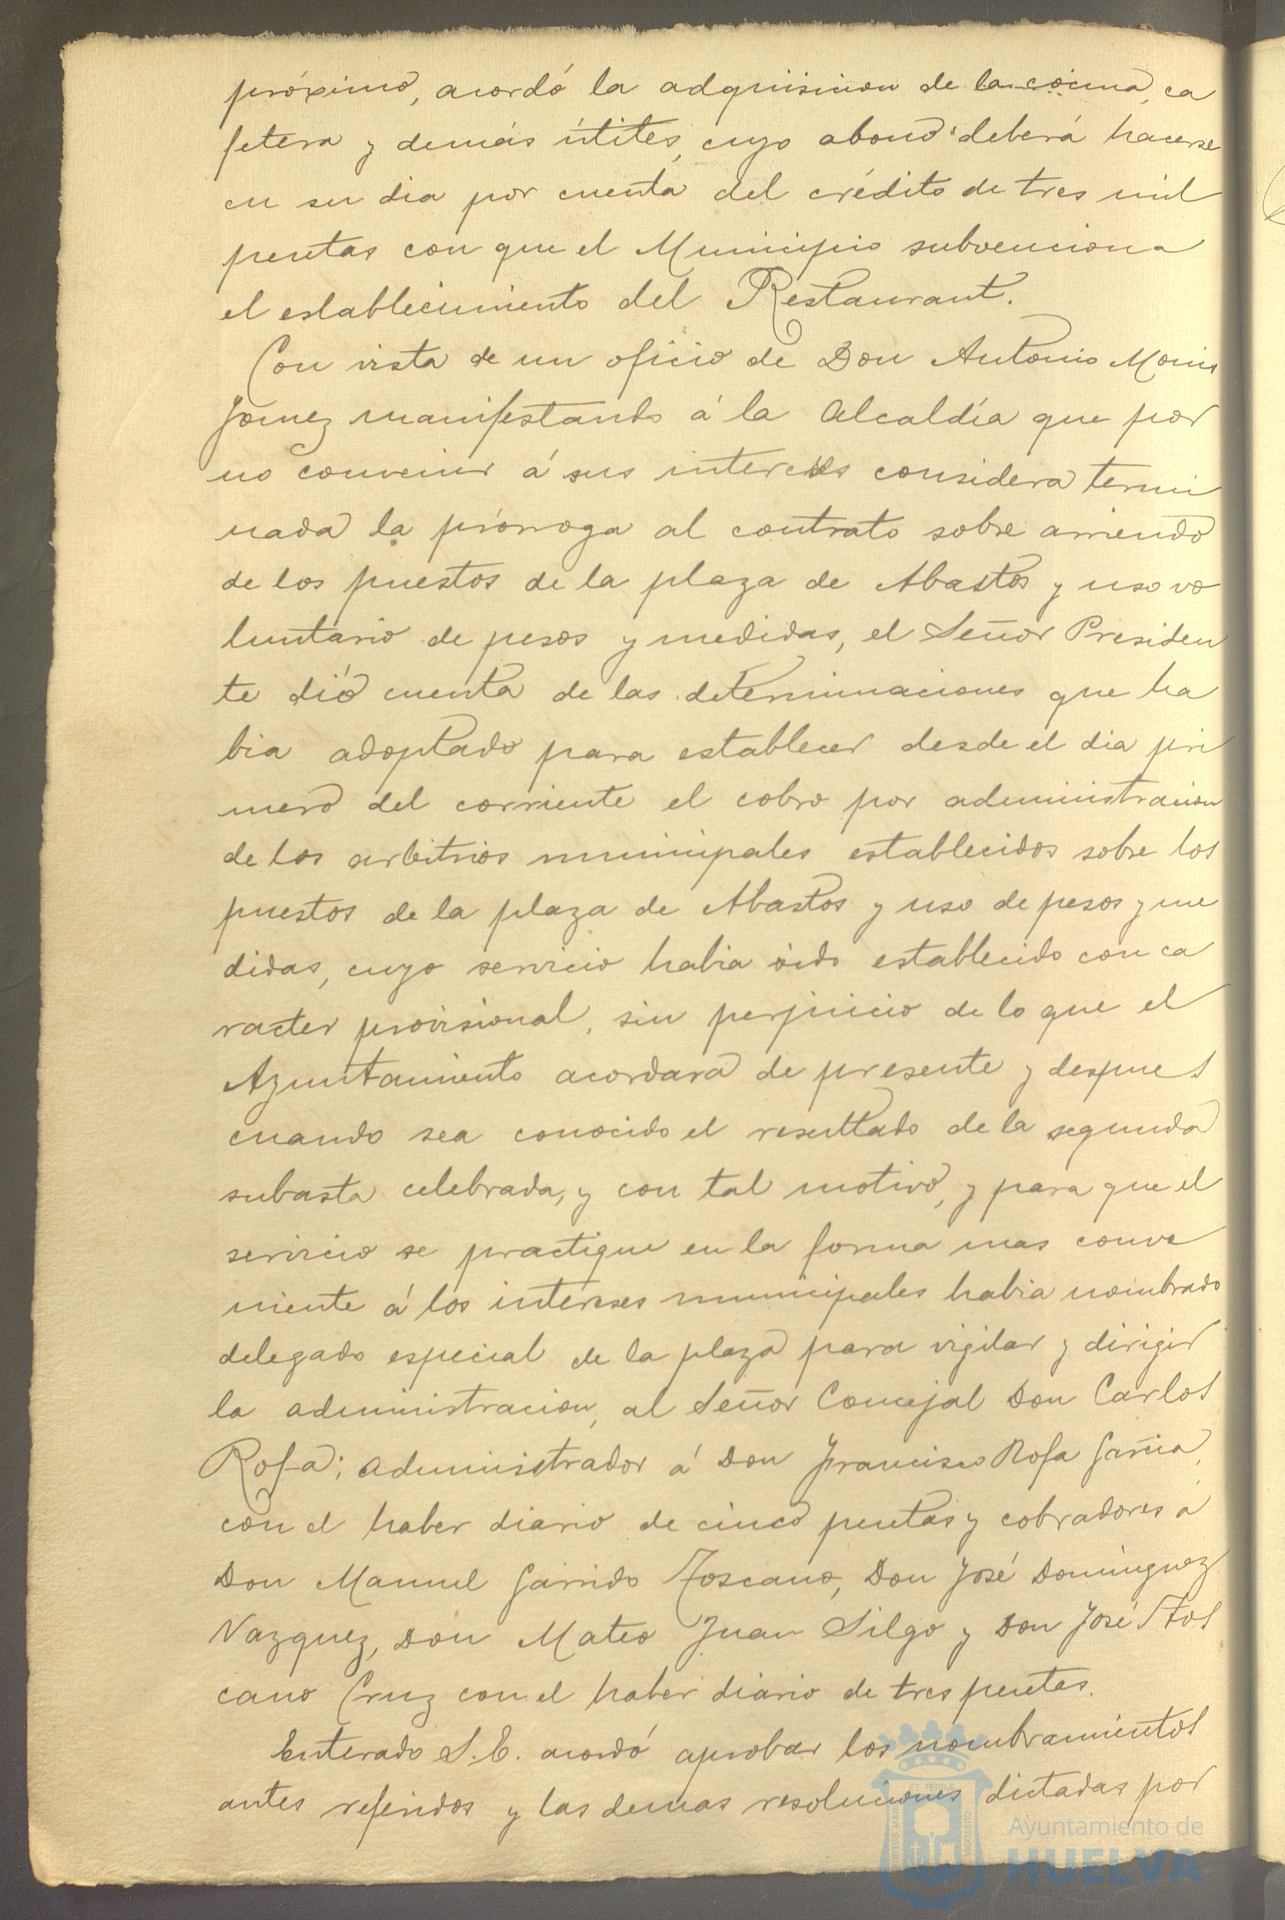 próximo, acordó la adquisicion de la cocina, ca
fetera y demás útiles, cuyo abono deberá hacerse
en su dia por cuenta del crédito de tres mil
pesetas con que el Municipio subvenciona
el establecimiento del Restaurant.
Con vista de un oficio de Don Antonio Monis
Gomez manifestando á la Alcaldía que por
no convenir á sus intereses considera termi
nada la prórroga al contrato sobre arriendo
de los puestos de la plaza de Abastos y uso vo
luntario de pesos y medidas, el Señor Presiden
te dió cuenta de las determinaciones que ha
bia adoptado para establecer desde el dia pri
mero del corriente el cobro por administracion
de los arbitrios municipales establecidos sobre los
puestos de la plaza de Abastos y uso de pesos y me
didas, cuyo servicio habia sido establecido con ca
racter provisional, sin perjuicio de lo que el
Ayuntamiento acordara de presente y despues
cuando sea conocido el resultado de la segunda
subasta celebrada, y con tal motivo, y para que el
servicio se practique en la forma mas conve
niente á los intereses municipales habia nombrado
delegado especial de la plaza para vigilar y dirigir
la administracion, al Señor Concejal Don Carlos
Rofa; administrador á Don Francisco Rofa Garcia,
con el haber diario de cinco pesetas y cobradores á
Don Manuel Garrido Toscano, Don José Dominguez
Vazquez, Don Mateo Juan Silgo y Don José Tos
cano Cruz con el haber diario de tres pesetas.
Enterado S.E. acordó aprobar los nombramientos
antes referidos y las demas resoluciones dictadas por
Ayuntamiento de
HUELVA